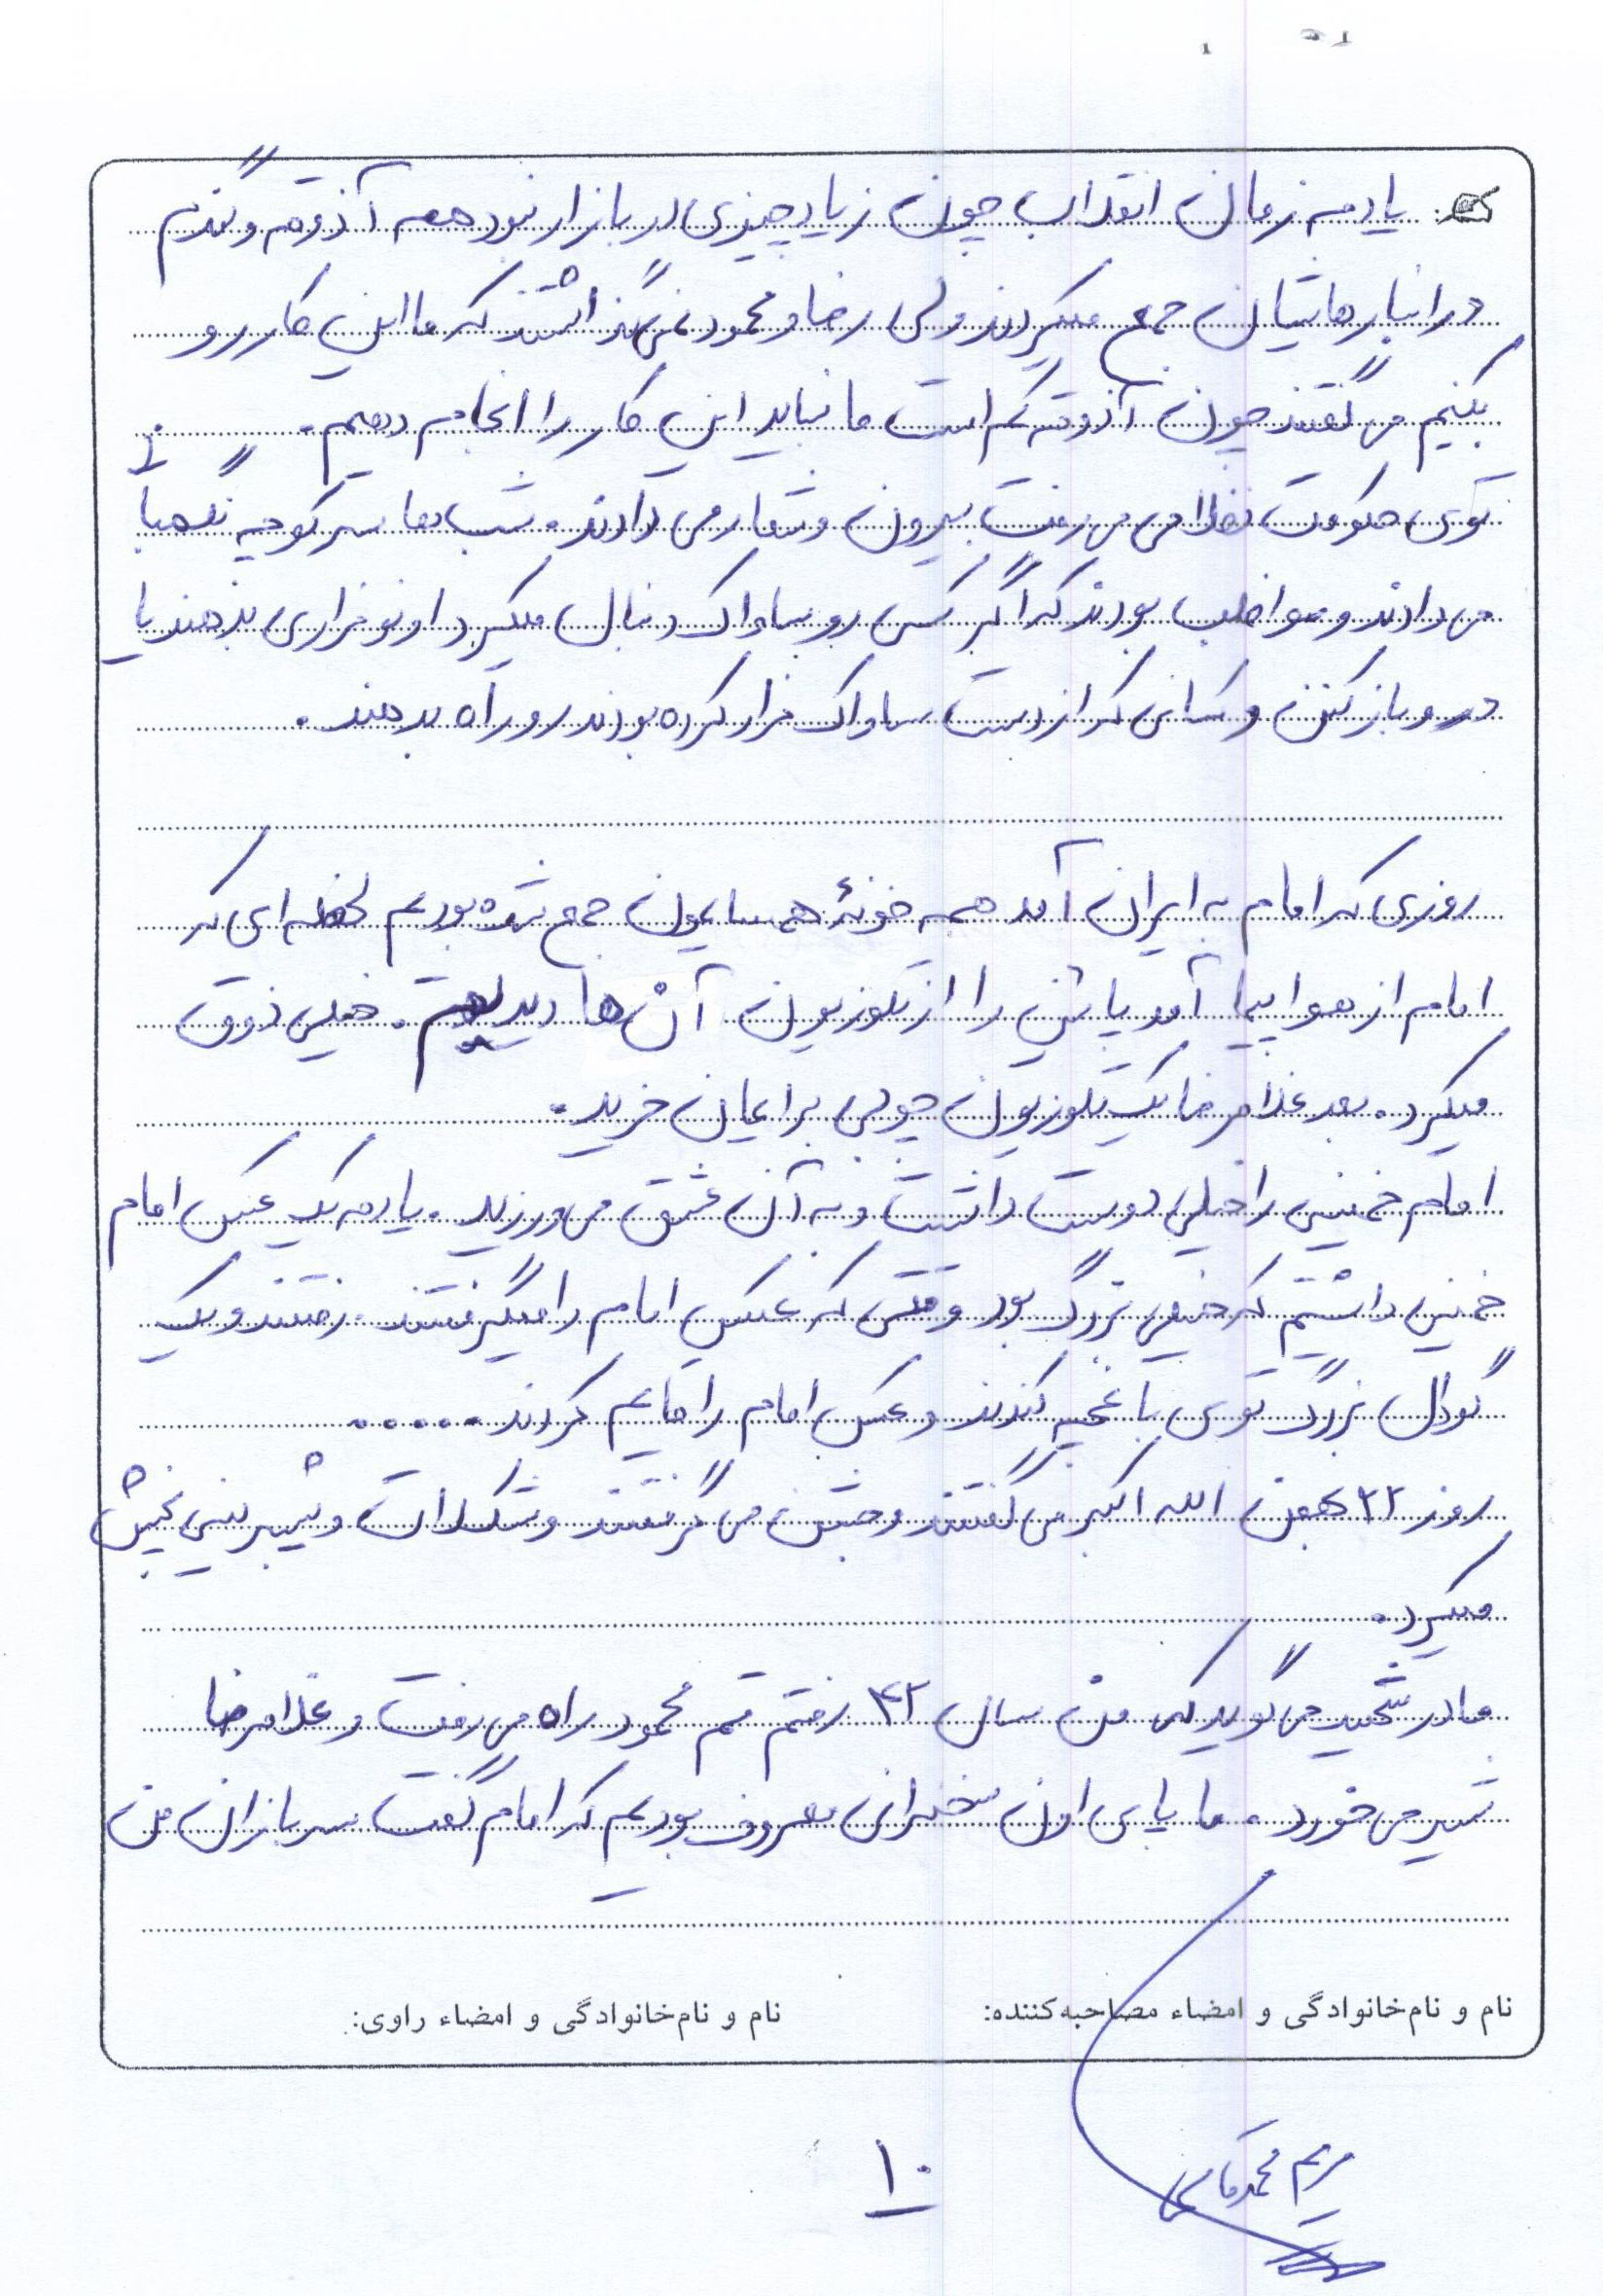 یادمه زمان انقلاب چون زیاد چیزی در بازار نبود همه آذوقه و گندم
در انبارهاشان جمع میکردند ولی رضا و محمود نمی‌گذاشتند که ما این کار رو
بکنیم می گفتند چون آذوقه کم است ما نباید این کار را انجام دهیم.
توی حکومت نظامی می رفت بیرون و شعار می دادند. شب ها سر کوچه نگهبانی
می دادند و مواظب بودند که اگر کسی رو ساواک دنبال میکرد اونو فراری بدهند یا
در رو باز کنن و کسانی که از دست ساواک فرار کرده بودند رو راه بدهند.
روزی که امام به ایران آمد همه خونهٔ همسایمون جمع شده بودیم لحظه ای که
امام از هواپیما آمد پائین را از تلوزیون آن ها دیدیم. خیلی ذوق
میکرد. بعد غلامرضا یک تلوزیون چوبی برایمان خرید.
امام خمینی را خیلی دوست داشت و به آن عشق می ورزید. یادمه یک عکس امام
خمینی داشتیم که خیلی بزرگ بود وقتی که عکس امام را میگرفتند. رفتند و یک
گودال بزرگ توی باغچه کندند و عکس امام را قایم کردند......
روز ۲۲ بهمن الله اکبر می گفتند و جشن می گرفتند و شکلات و شیرینی پخش
میکرد.
مادر شهید می گوید که من سال ۴۲ رفتم قم محمود راه می رفت و غلامرضا
شیر می خورد. ما پای اون سخنرانی معروف بودیم که امام گفت سربازان من
نام و نام‌خانوادگی و امضاء مصاحبه‌کننده:
نام و نام‌خانوادگی و امضاء راوی:
مریم
۱۰